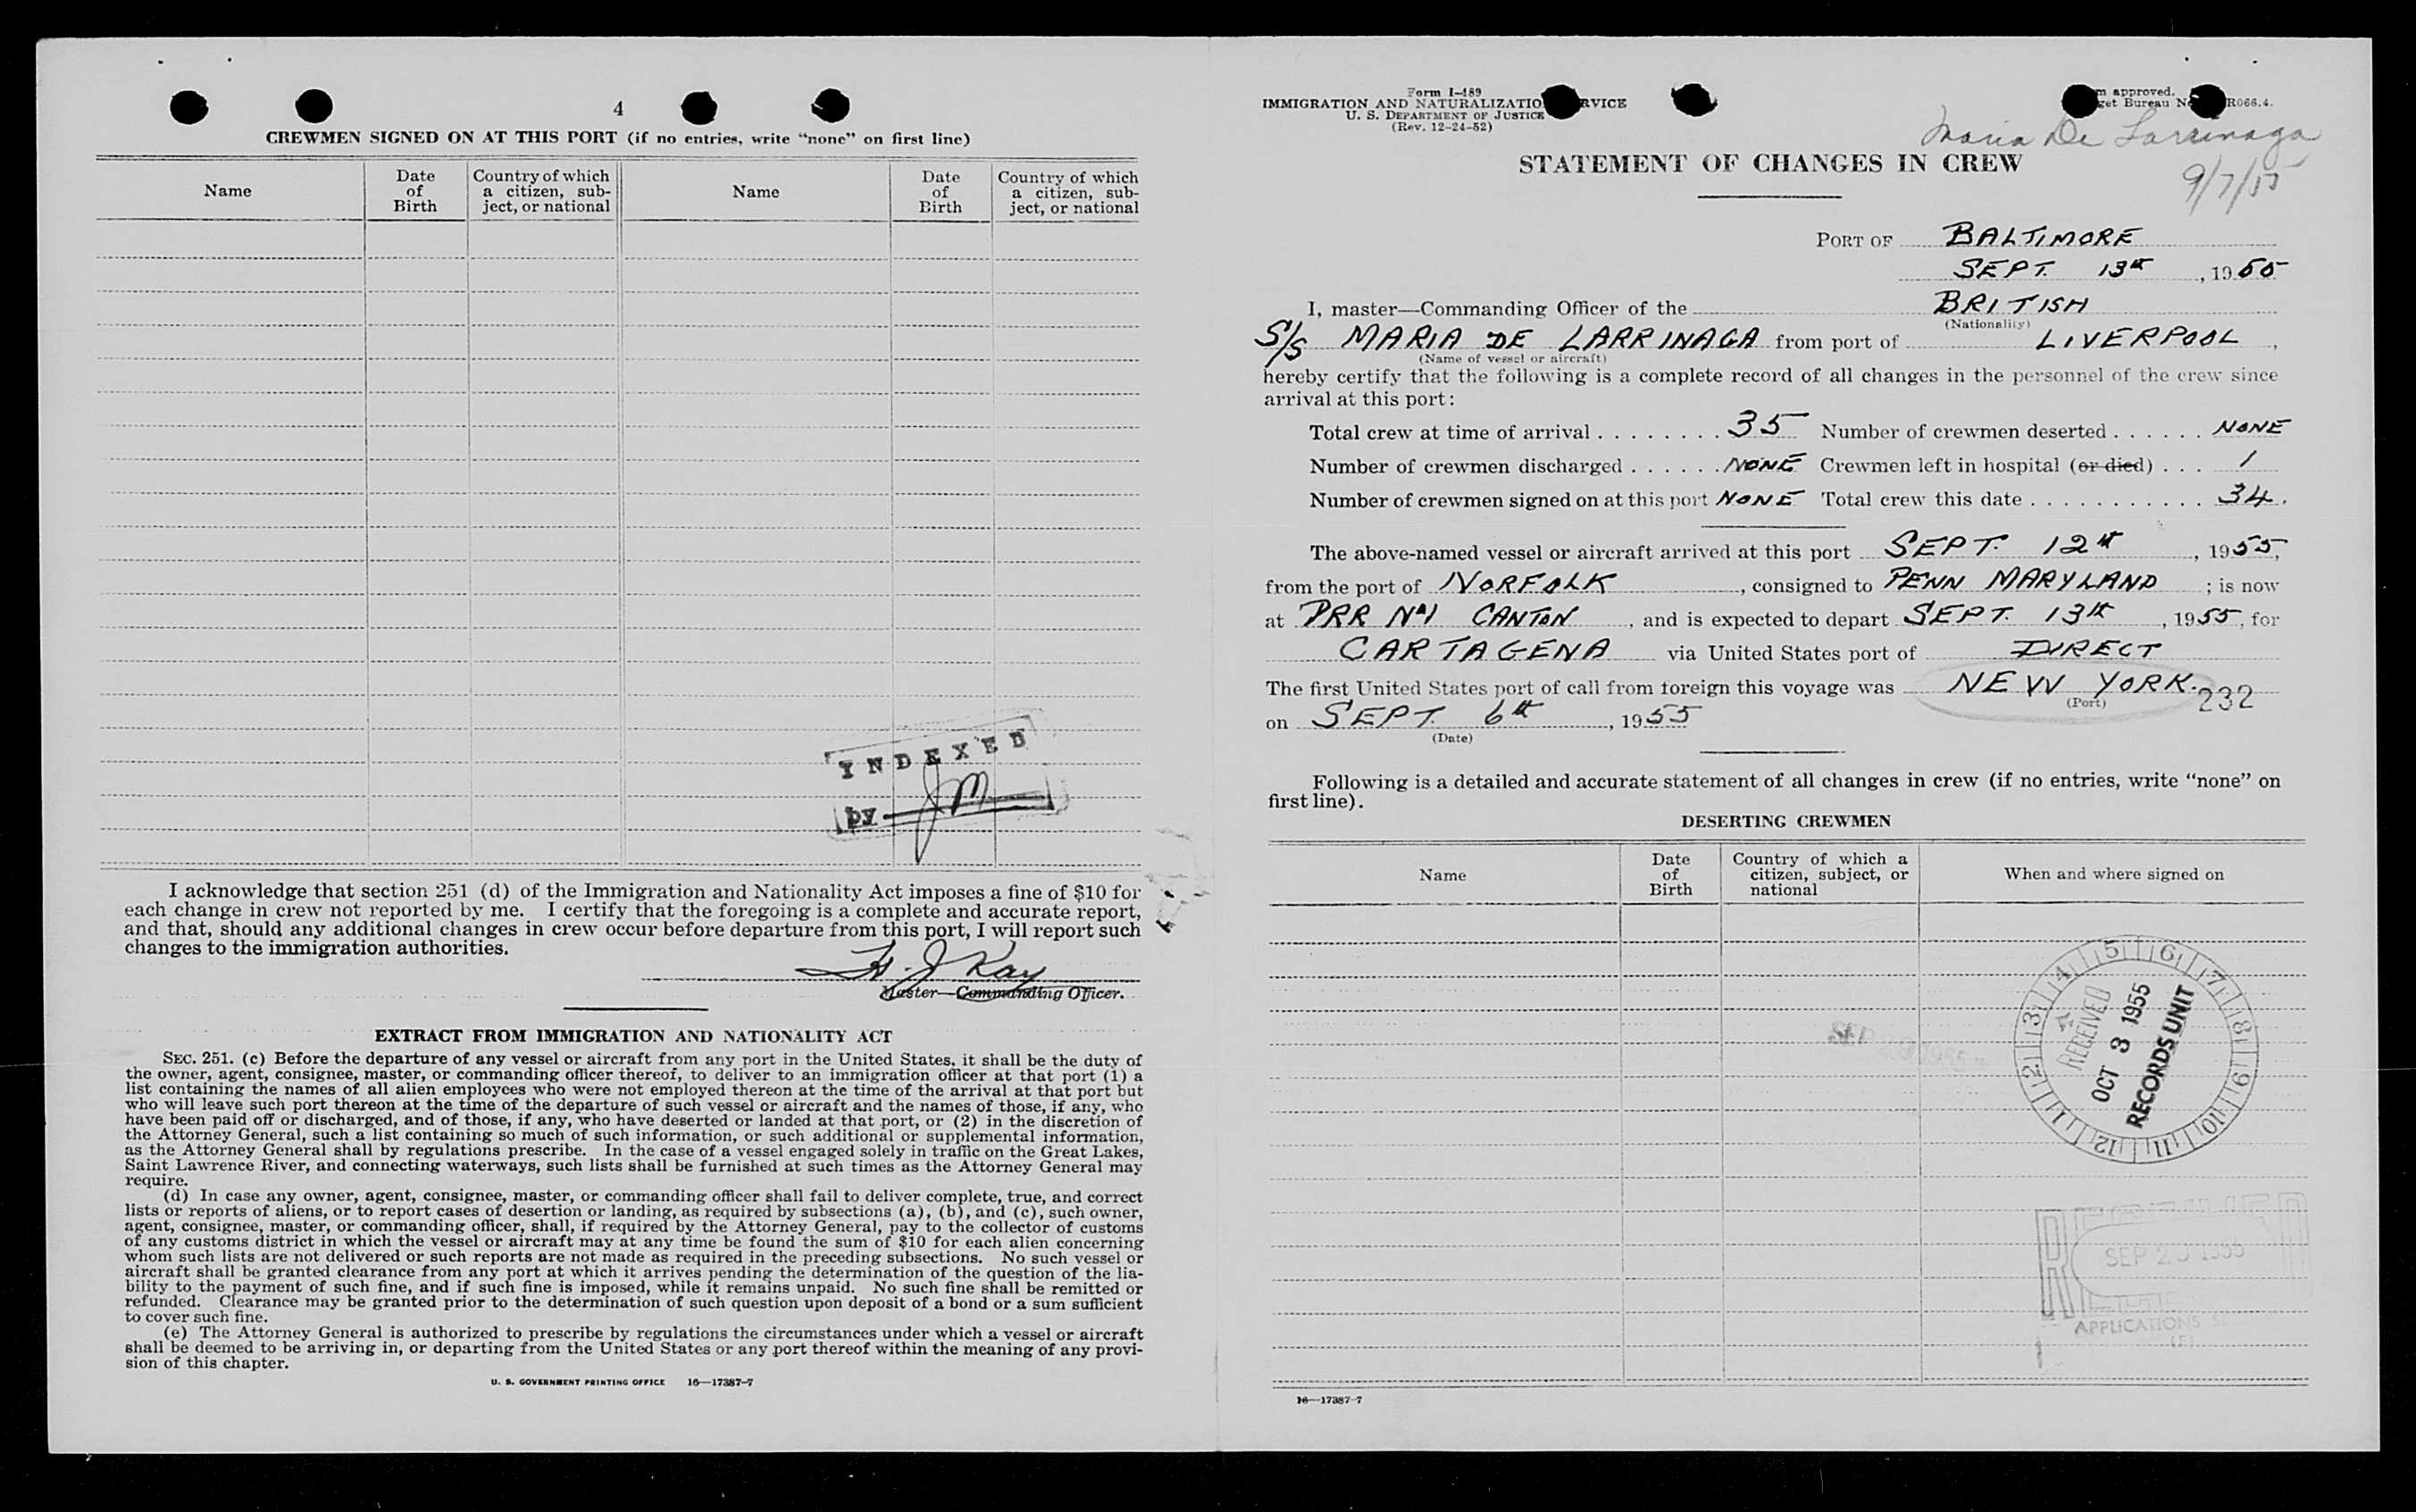 4
CREWMEN SIGNED ON AT THIS PORT (if no entries, write “none” on first line)
Name
Date of Birth
Country of which a citizen, sub-
ject, or national
Name
Date of Birth
Country of which a citizen, sub-
ject, or national
INDEXED
by JM
I acknowledge that section 251 (d) of the Immigration and Nationality Act imposes a fine of $10 for
each change in crew not reported by me. I certify that the foregoing is a complete and accurate report,
and that, should any additional changes in crew occur before departure from this port, I will report such
changes to the immigration authorities.
H. J Kay
Master—Commanding Officer.
EXTRACT FROM IMMIGRATION AND NATIONALITY ACT
SEC. 251. (c) Before the departure of any vessel or aircraft from any port in the United States, it shall be the duty of
the owner, agent, consignee, master, or commanding officer thereof, to deliver to an immigration officer at that port (1) a
list containing the names of all alien employees who were not employed thereon at the time of the arrival at that port but
who will leave such port thereon at the time of the departure of such vessel or aircraft and the names of those, if any, who
have been paid off or discharged, and of those, if any, who have deserted or landed at that port, or (2) in the discretion of
the Attorney General, such a list containing so much of such information, or such additional or supplemental information,
as the Attorney General shall by regulations prescribe. In the case of a vessel engaged solely in traffic on the Great Lakes,
Saint Lawrence River, and connecting waterways, such lists shall be furnished at such times as the Attorney General may
require.
(d) In case any owner, agent, consignee, master, or commanding officer shall fail to deliver complete, true, and correct
lists or reports of aliens, or to report cases of desertion or landing, as required by subsections (a), (b), and (c), such owner,
agent, consignee, master, or commanding officer, shall, if required by the Attorney General, pay to the collector of customs
of any customs district in which the vessel or aircraft may at any time be found the sum of $10 for each alien concerning
whom such lists are not delivered or such reports are not made as required in the preceding subsections. No such vessel or
aircraft shall be granted clearance from any port at which it arrives pending the determination of the question of the lia-
bility to the payment of such fine, and if such fine is imposed, while it remains unpaid. No such fine shall be remitted or
refunded. Clearance may be granted prior to the determination of such question upon deposit of a bond or a sum sufficient
to cover such fine.
(e) The Attorney General is authorized to prescribe by regulations the circumstances under which a vessel or aircraft
shall be deemed to be arriving in, or departing from the United States or any port thereof within the meaning of any provi-
sion of this chapter.
U. S. GOVERNMENT PRINTING OFFICE 16—17387-7
Form I-489
IMMIGRATION AND NATURALIZATIO RVICE
U. S. DEPARTMENT OF JUSTICE
(Rev. 12-24-52)
approved.
get Bureau N R066.4.
Maria De Larrinaga
9/7/55
STATEMENT OF CHANGES IN CREW
PORT OF BALTIMORE
SEPT. 13th, 1955
I, master—Commanding Officer of the BRITISH
(Nationality)
S/S MARIA DE LARRINAGA from port of LIVERPOOL,
(Name of vessel or aircraft)
hereby certify that the following is a complete record of all changes in the personnel of the crew since
arrival at this port:
Total crew at time of arrival . . . . . . . . 35 Number of crewmen deserted . . . . . . NONE
Number of crewmen discharged . . . . . . NONE Crewmen left in hospital (or died) . . . 1
Number of crewmen signed on at this port NONE Total crew this date . . . . . . . . . . . . 34.
The above-named vessel or aircraft arrived at this port SEPT. 12th, 1955,
from the port of NORFOLK, consigned to PENN MARYLAND; is now
at PRR No1 CANTON, and is expected to depart SEPT. 13th, 1955, for
CARTAGENA via United States port of DIRECT
The first United States port of call from foreign this voyage was NEW YORK. 232
(Port)
on SEPT. 6th, 1955
(Date)
Following is a detailed and accurate statement of all changes in crew (if no entries, write “none” on
first line).
DESERTING CREWMEN
Name
Date of Birth
Country of which a citizen, subject, or national
When and where signed on
1 2 3 4 5 6 7 8 9 10 11 12
RECEIVED
OCT 3 1955
RECORDS UNIT
SEP 1955
RECEIVED
SEP 1955
APPLICATIONS
16—17387-7